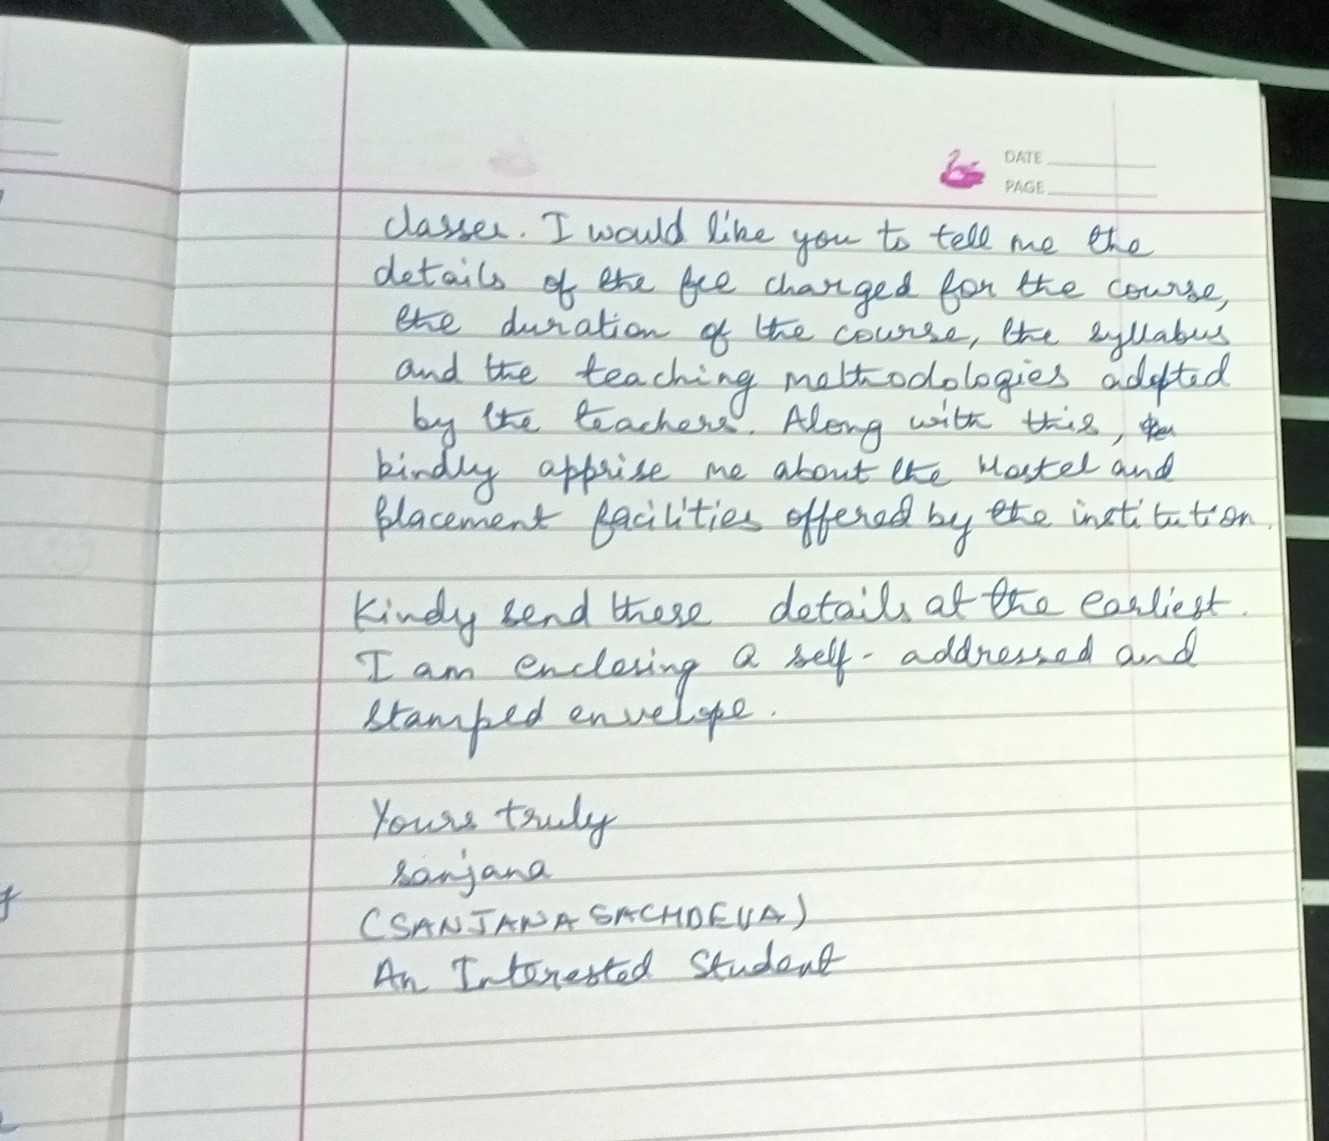 DATE
PAGE
classes. I would like you to tell me the
details of the fee charged for the course,
the duration of the course, the syllabus
and the teaching methodologies adopted
by the teachers. Along with this,
kindly apprise me about the Hostel and
placement facilities offered by the institution.
Kindy send these details at the earliest.
I am enclosing a self-addressed and
stamped envelope.
Yours truly
Sanjana
(SANJANA SACHDEVA)
An Interested Student